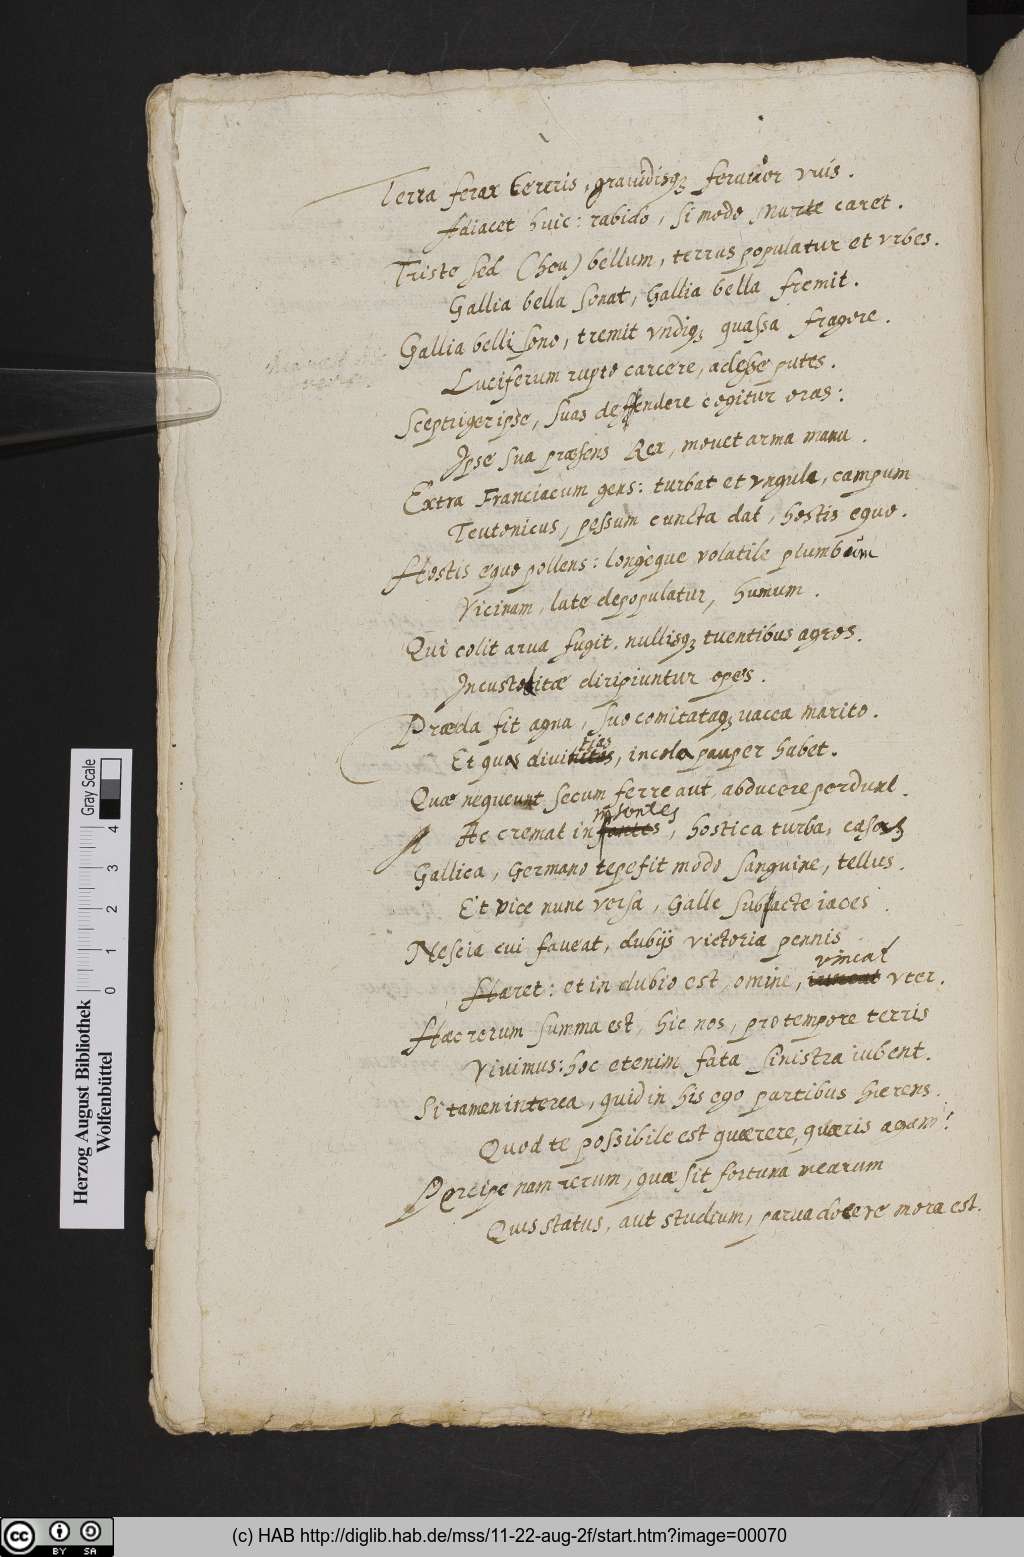 Terra ferax Cereris, grauidisq; feratior vuis.
Adiacet huic: rabido, si modo Marte caret.
Triste sed (heu) bellum, terras populatur et vrbes.
Gallia bella sonat, Gallia bella fremit.
Gallia belli sono, tremit vndiq; quassa fragore.
Luciferum rupto carcere, adesse putes.
Sceptriger ipse, suas deffendere cogitur oras:
Ipse sua præsens Rex, mouet arma manu.
Extra Franciacum gens: turbat et vngula, campum
Teutonicus, pessum cuncta dat, hostis equo.
Hostis equo pollens: longeque volatile plumbum
Vicinam, late depopulatur, humum.
Qui colit arua fugit. nullisq; tuentibus agros.
Incustoditæ diripiuntur opes.
Præda fit agna, suo comitataq; uacca marito.
Et quas diuitias, incola pauper habet.
Quæ nequeunt secum ferre aut abducere perdunt.
insontes
Ac cremat in sontes, hostica turba, casas
Gallica, Germano tepefit modo sanguine, tellus.
Et vice nunc versa, Galle subacte iaces.
Nescia cui faueat, dubijs victoria pennis
vincat
Hæret: et in dubio est, omine, uter.
Hæc rerum summa est, hic nos, pro tempore terris
Viuimus: hoc etenim fata sinistra iubent.
Si tamen interea, quid in his ego partibus hærens.
Quod te possibile est quærere, quæris agam!
Percipe nam rerum, quæ sit fortuna mearum
Quis status, aut studium, parua docere mora est.
Herzog August Bibliothek
Wolfenbüttel
Gray Scale
0 1 2 3 4
(c) HAB http://diglib.hab.de/mss/11-22-aug-2f/start.htm?image=00070
cc BY SA